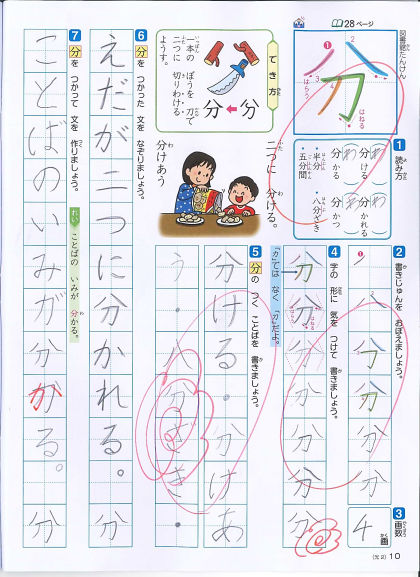 図書館たんけん
28ページ
1 読み方
分ける
分かれる
分かる
分かつ
半分
八分さき
五分間
でき方
一本の ぼうを 刀で
二つに 切りわける
ようす。
分←分
二つに 分ける。
分けあう
2 書きじゅんを おぼえましょう。
ノ 八 分 分 分 分
3 画数
4画
4 字の 形に 気を つけて 書きましょう。
「か」では なく「刀」だよ。
はらう
はねる
分 分 分 分 分 分
5 分の つく ことばを 書きましょう。
分ける・分けあ
う・八分さき・
6 分を つかった 文を なぞりましょう。
えだが二つに分かれる。分
7 分を つかって 文を 作りましょう。
れい ことばの いみが 分かる。
ことばのいみが分かる。分
(光2) 10